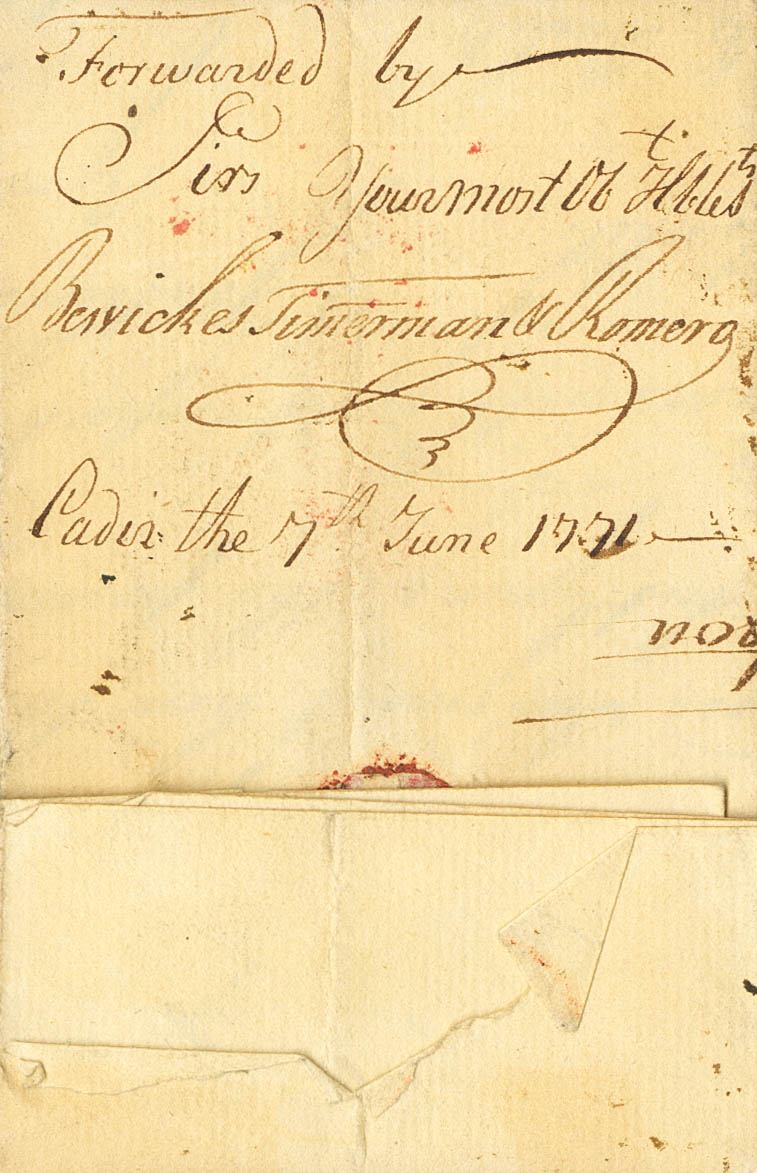 Forwarded by
Sirs Your most Obt Hble Sts
Bewickes Timerman & Romero
Cadiz the 7th June 1771